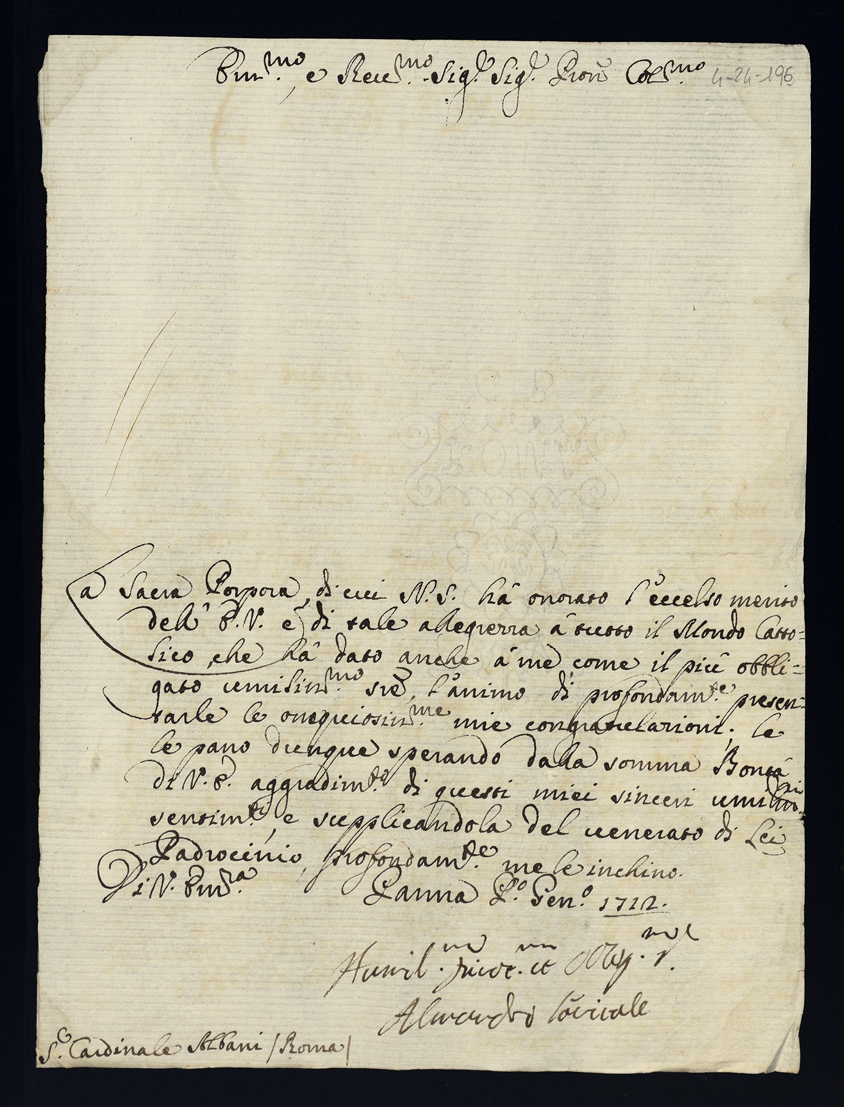 Em.mo, e Rev.mo Sig.r Sig.r Pron Col.mo 4-24-196
La Sacra Porpora, di cui N.S. há onorato l'eccelso merito
dell' E.V. é di tale allegrezza á tutto il Mondo Catto=
lico, che há dato anche á me come il piú obbli=
gato umilissi.mo l'animo di profondam.te presen=
tarle le ossequiosiss.me mie congratulazioni; le
le pano dunque sperando dalla somma Bontá
di V.E. aggradim.to di questi miei sinceri umiliss.mi
sentim.ti, e supplicandola del venerato di Lei
Padrocinio, profondam.te me le inchino.
Di V. Em.za Parma P.o Gen.o 1712.
Humil.
S.r Cardinale Albani /Roma/
ROMA